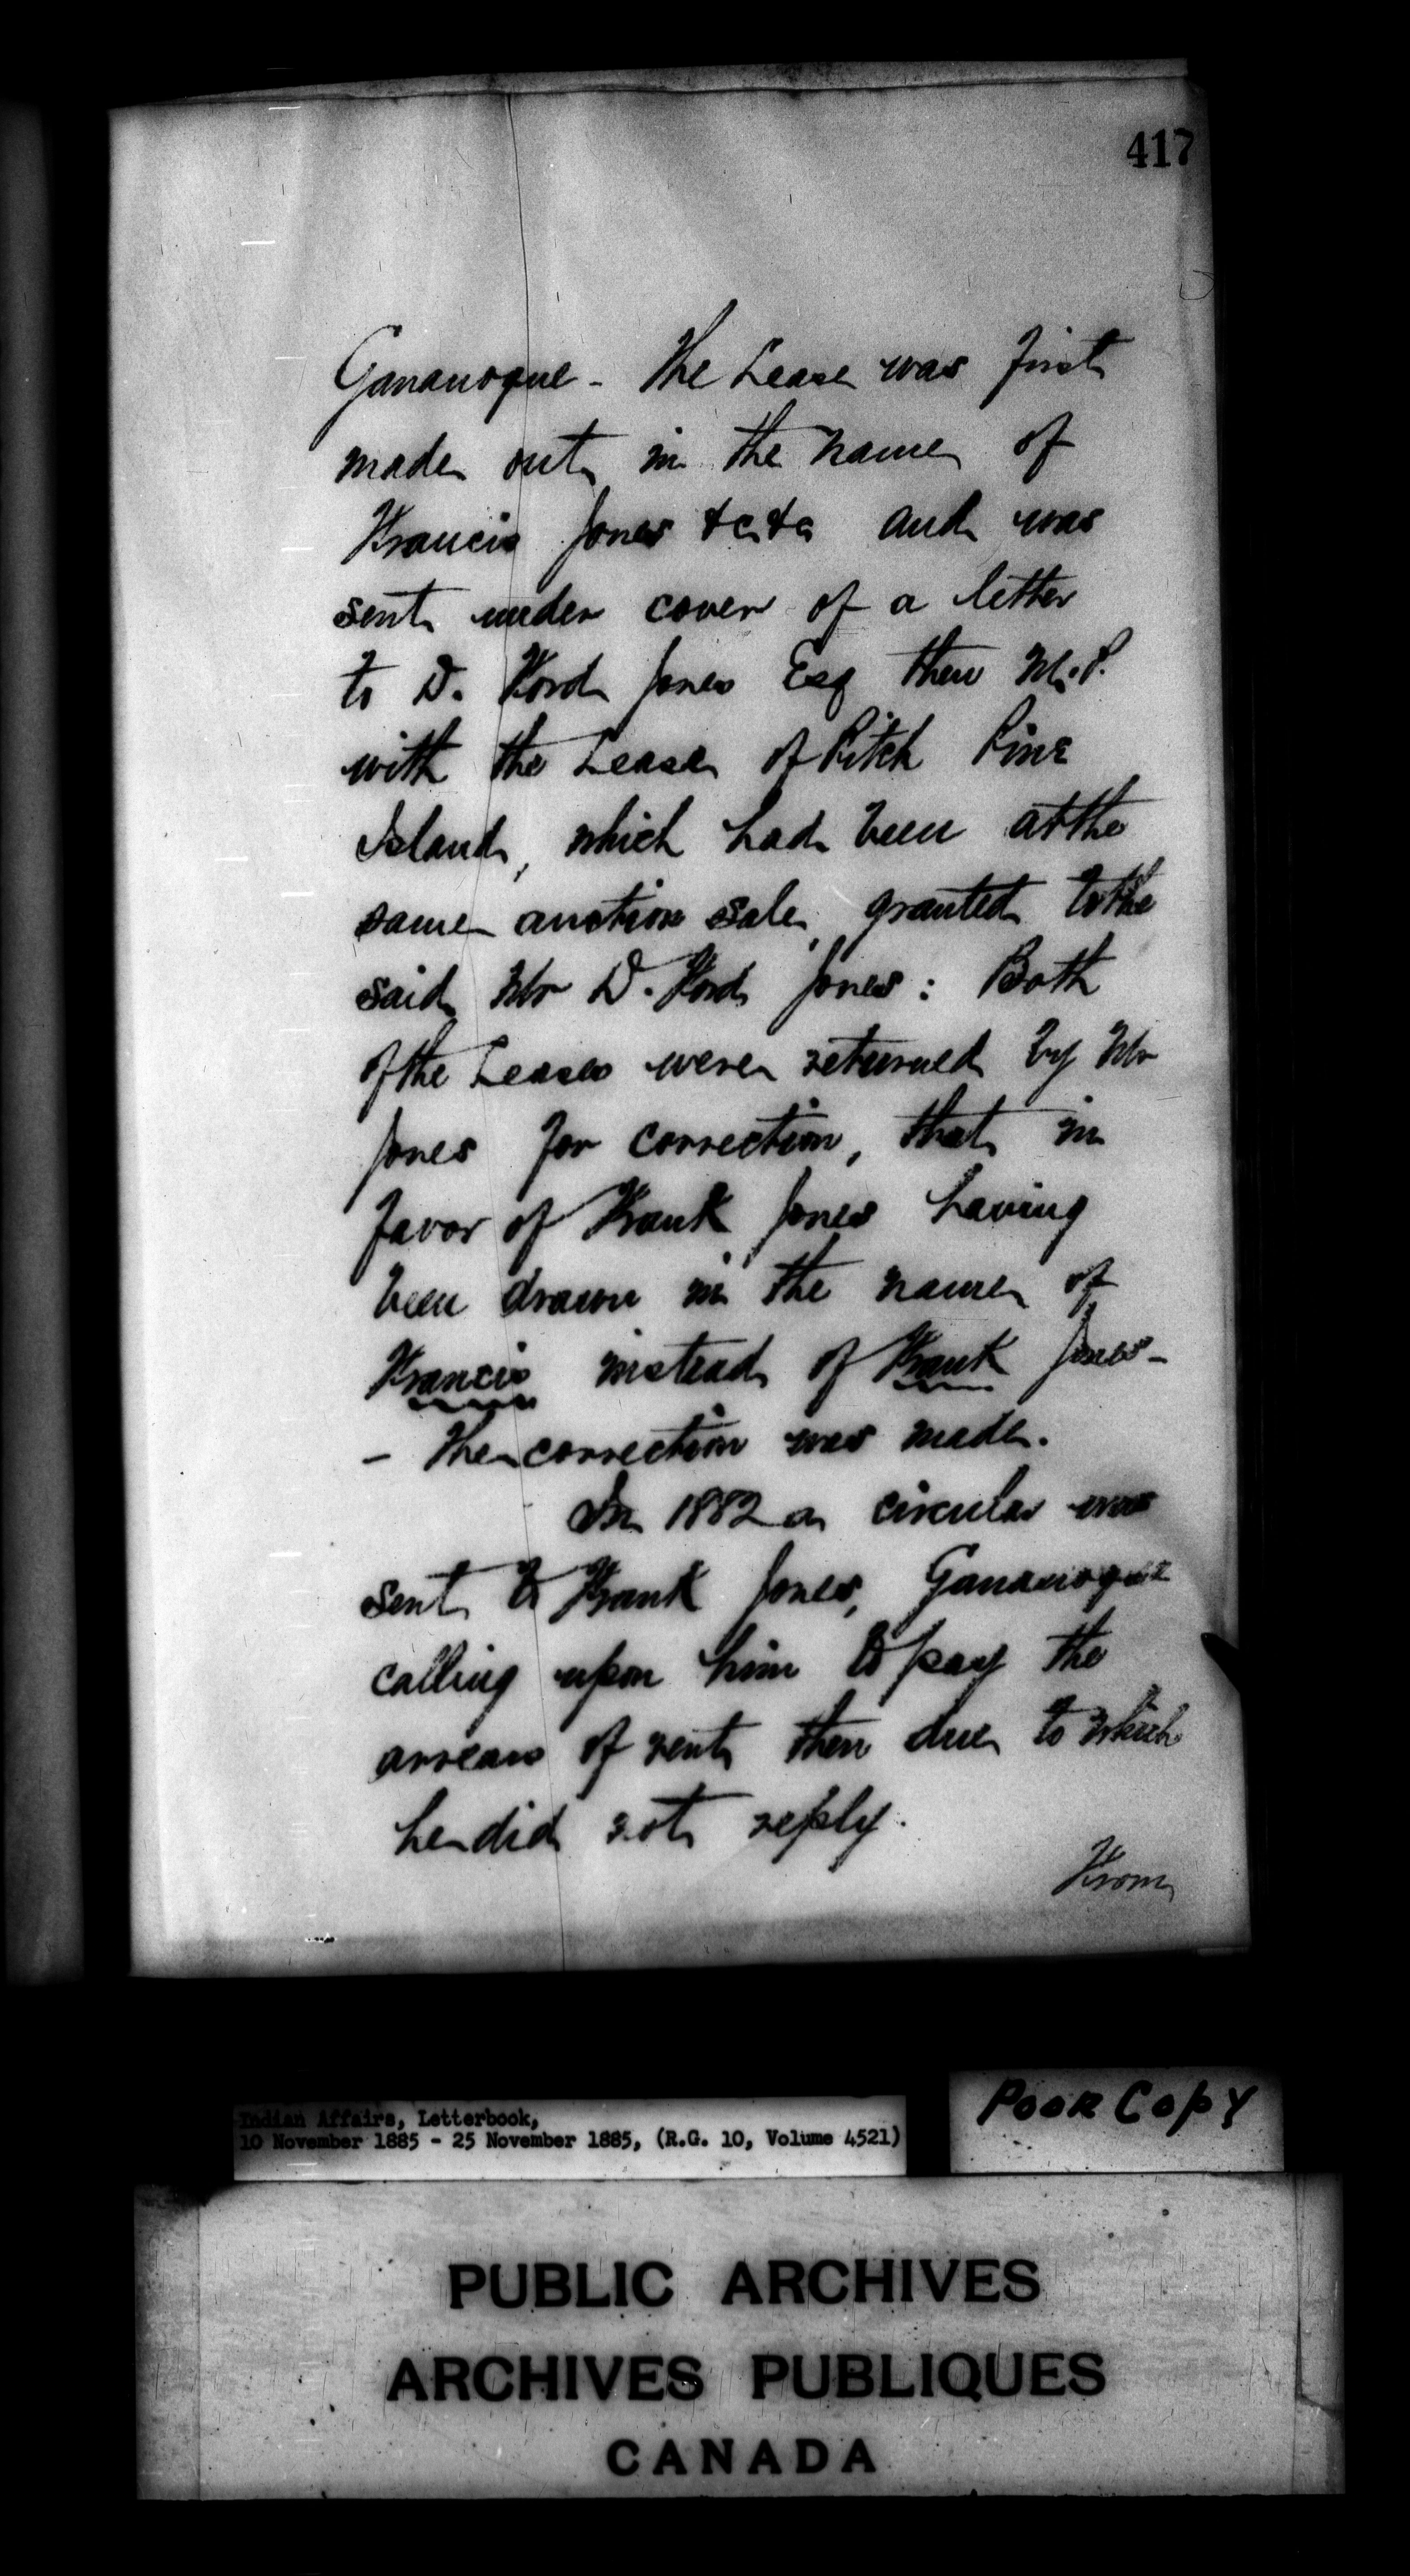 417
Gananoque - The Lease was first
made out in the name of
Francis Jones &c &c and was
sent under cover of a letter
to D. Ford Jones Esq then M.P.
with the Lease of Pitch Pine
Island, which had been at the
same auction sale, granted to the
said Mr D. Ford Jones: Both
of the Leases were returned by Mr
Jones for correction, that in
favor of Frank Jones having
been drawn in the name of
Francis instead of Frank Jones -
- The correction was made.
In 1882 a circular was
sent to Frank Jones, Gananoque
calling upon him to pay the
arrears of rent then due to which
he did not reply.
From
Indian Affairs, Letterbook,
10 November 1885 - 25 November 1885, (R.G. 10, Volume 4521)
Poor Copy
PUBLIC ARCHIVES
ARCHIVES PUBLIQUES
CANADA